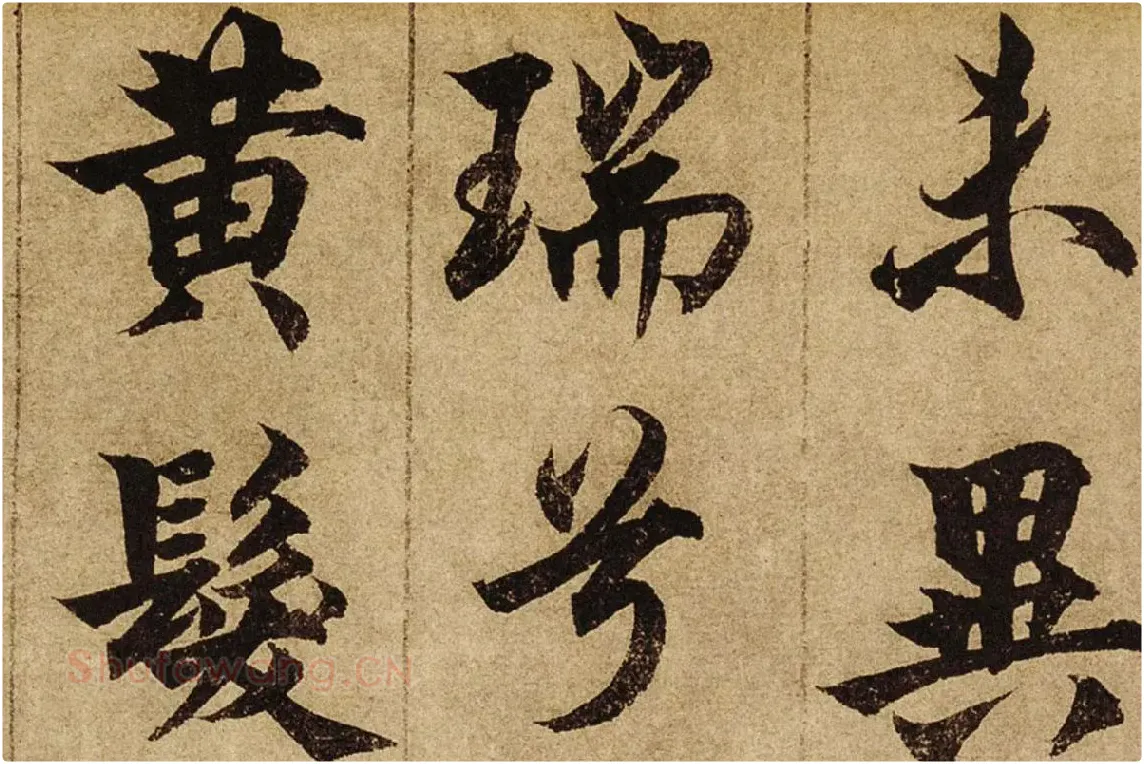 未異
瑞兮
黄髮
Shufawang.CN